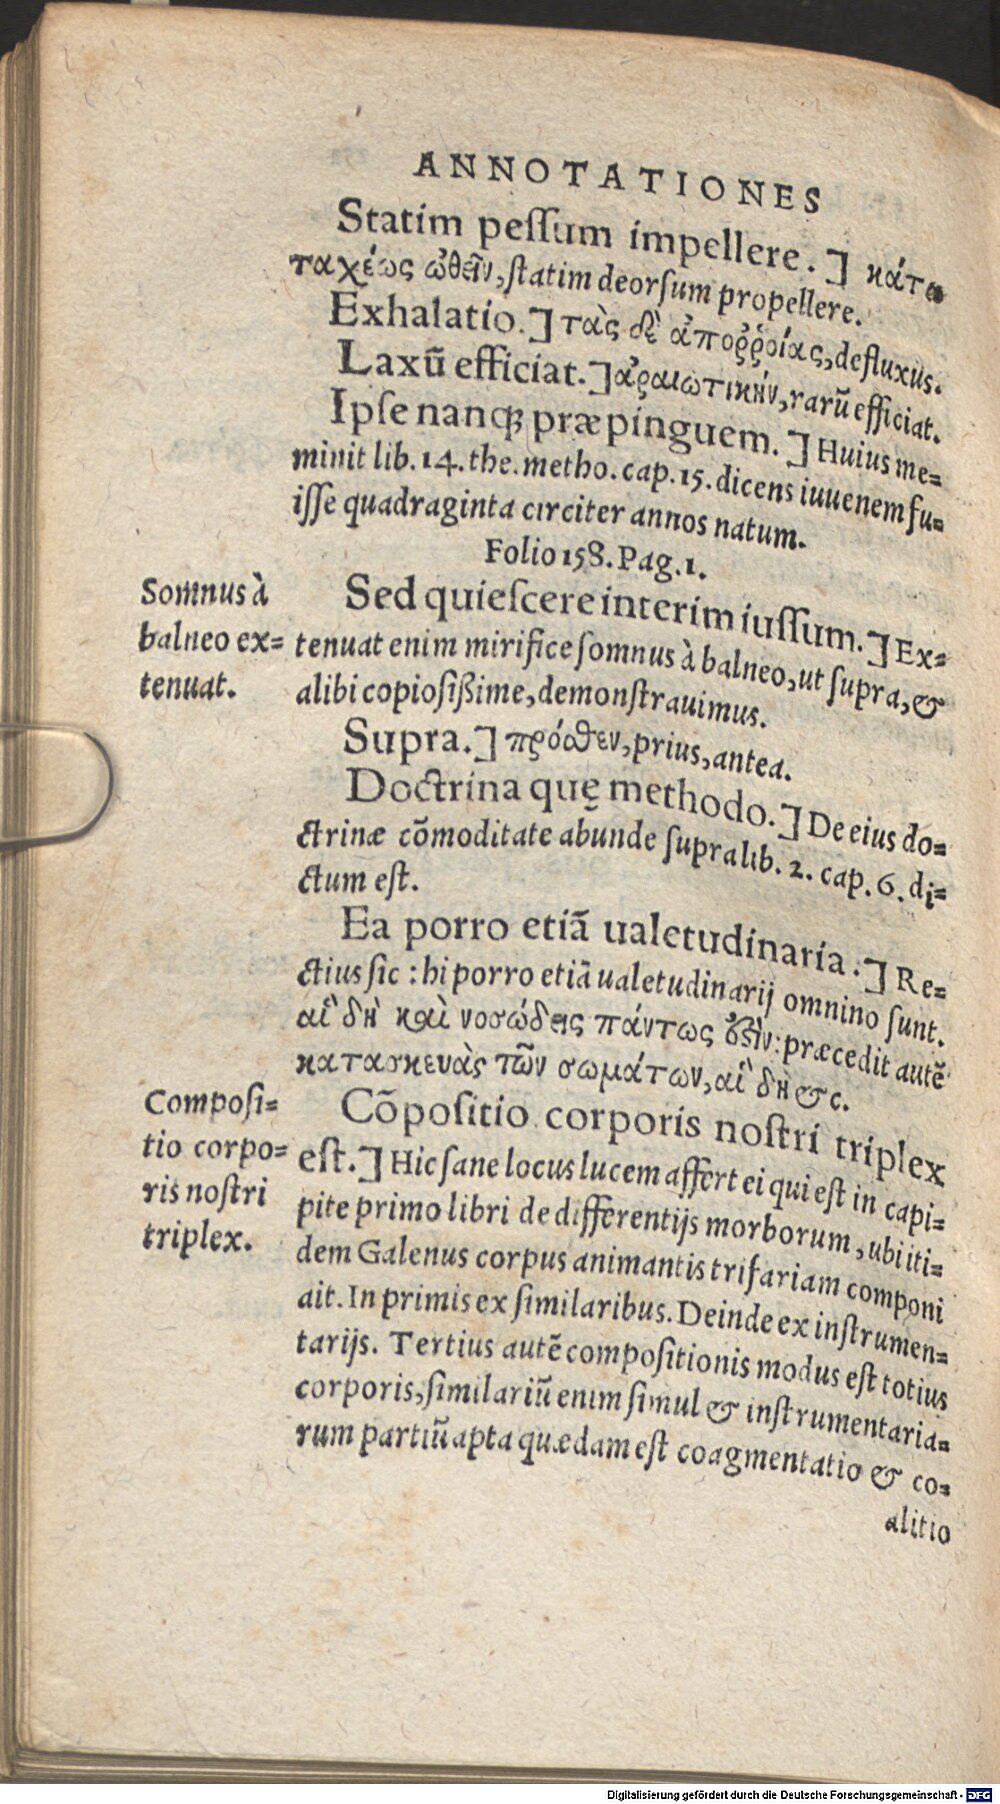 ANNOTATIONES
Statim pessum impellere.] κάτω
ταχέως ὠθεῖν, statim deorsum propellere.
Exhalatio.] τὰς δὲ ἀποῤῥοίας, defluxus.
Laxũ efficiat.] ἀραιωτικήν, rarũ efficiat.
Ipse nanq; præpinguem.] Huius me=
minit lib. 14. the. metho. cap. 15. dicens iuuenem fu=
isse quadraginta circiter annos natum.
Folio 158. Pag. 1.
Sed quiescere interim iussum.] Ex=
tenuat enim mirifice somnus à balneo, ut supra, &
alibi copiosißime, demonstrauimus.
Somnus à
balneo ex=
tenuat.
Supra.] πρόσθεν, prius, antea.
Doctrina quę methodo.] De eius do=
ctrinæ cõmoditate abunde supra lib. 2. cap. 6. di=
ctum est.
Ea porro etiã ualetudinaria.] Re=
ctius sic: hi porro etiã ualetudinarij omnino sunt.
αἳ δὴ καὶ νοσώδεις πάντως εἰσὶν: præcedit autẽ
κατασκευὰς τῶν σωμάτων, αἳ δὴ &c.
Cõpositio corporis nostri triplex
est.] Hic sane locus lucem affert ei qui est in capi=
pite primo libri de differentijs morborum, ubi iti=
dem Galenus corpus animantis trifariam componi
ait. In primis ex similaribus. Deinde ex instrumen=
tarijs. Tertius autẽ compositionis modus est totius
corporis, similariũ enim simul & instrumentaria=
rum partiũ apta quædam est coagmentatio & co=
alitio
Composi=
tio corpo=
ris nostri
triplex.
Digitalisierung gefördert durch die Deutsche Forschungsgemeinschaft - DFG